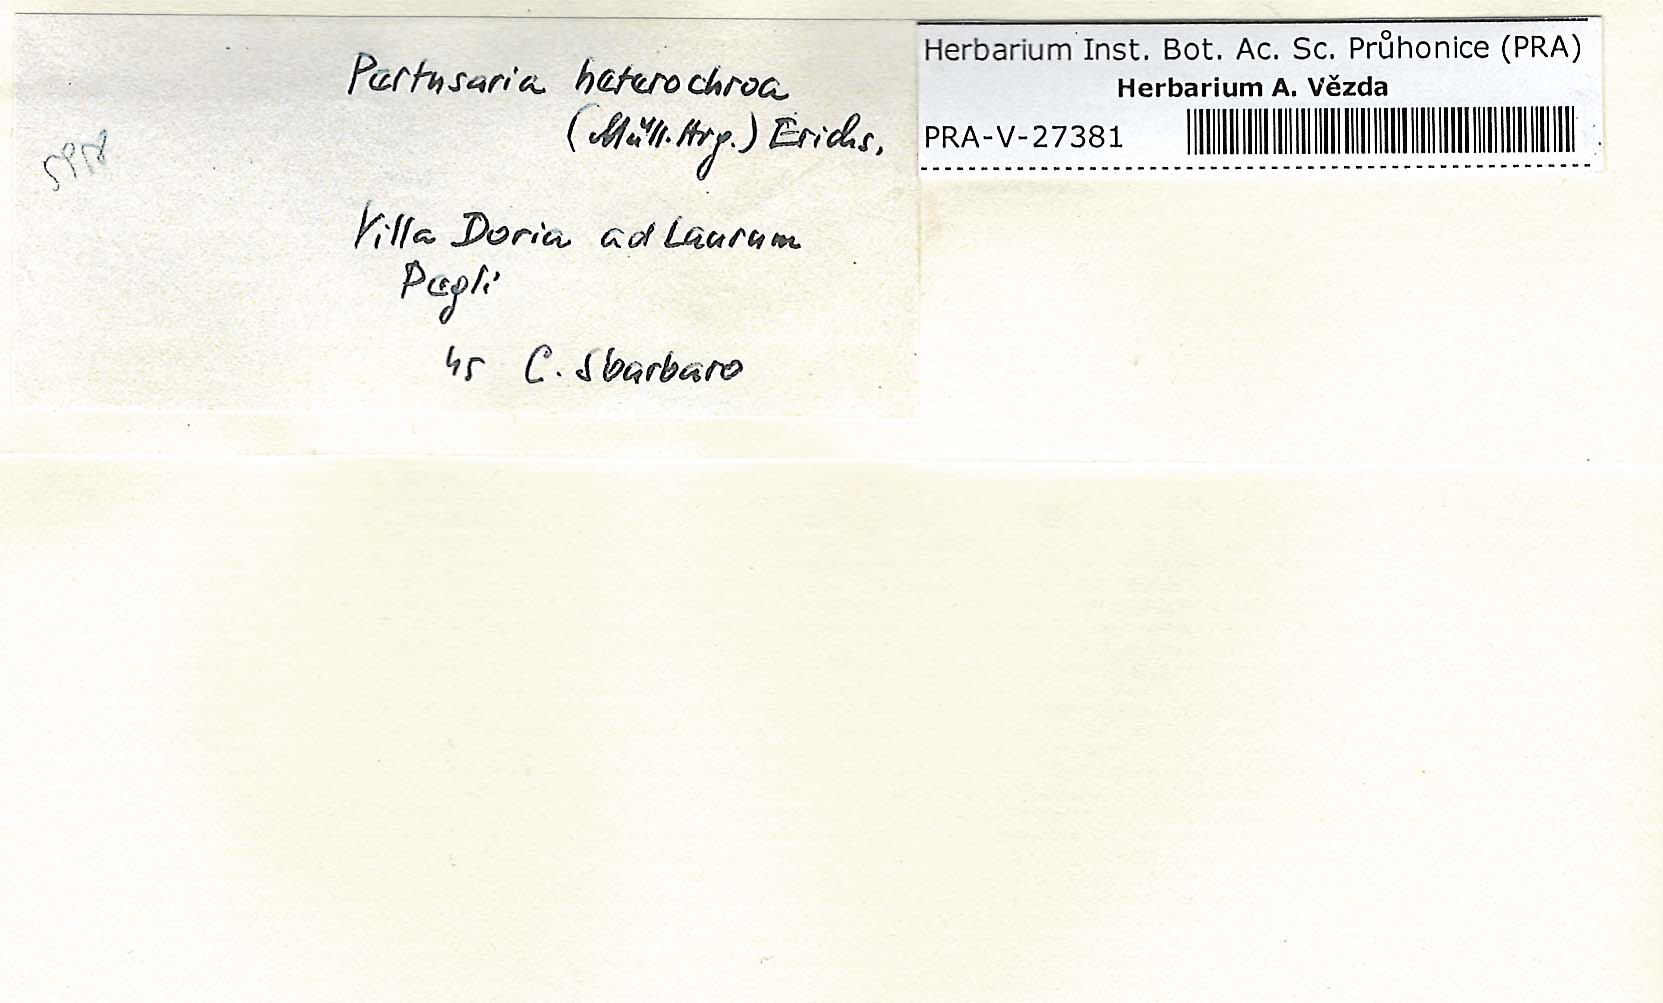 Pertusaria heterochroa
(Müll. Arg.) Erichs.
Villa Doria ad Laurum
Pegli
45 C. Sbarbaro
Herbarium Inst. Bot. Ac. Sc. Průhonice (PRA)
Herbarium A. Vězda
PRA-V-27381